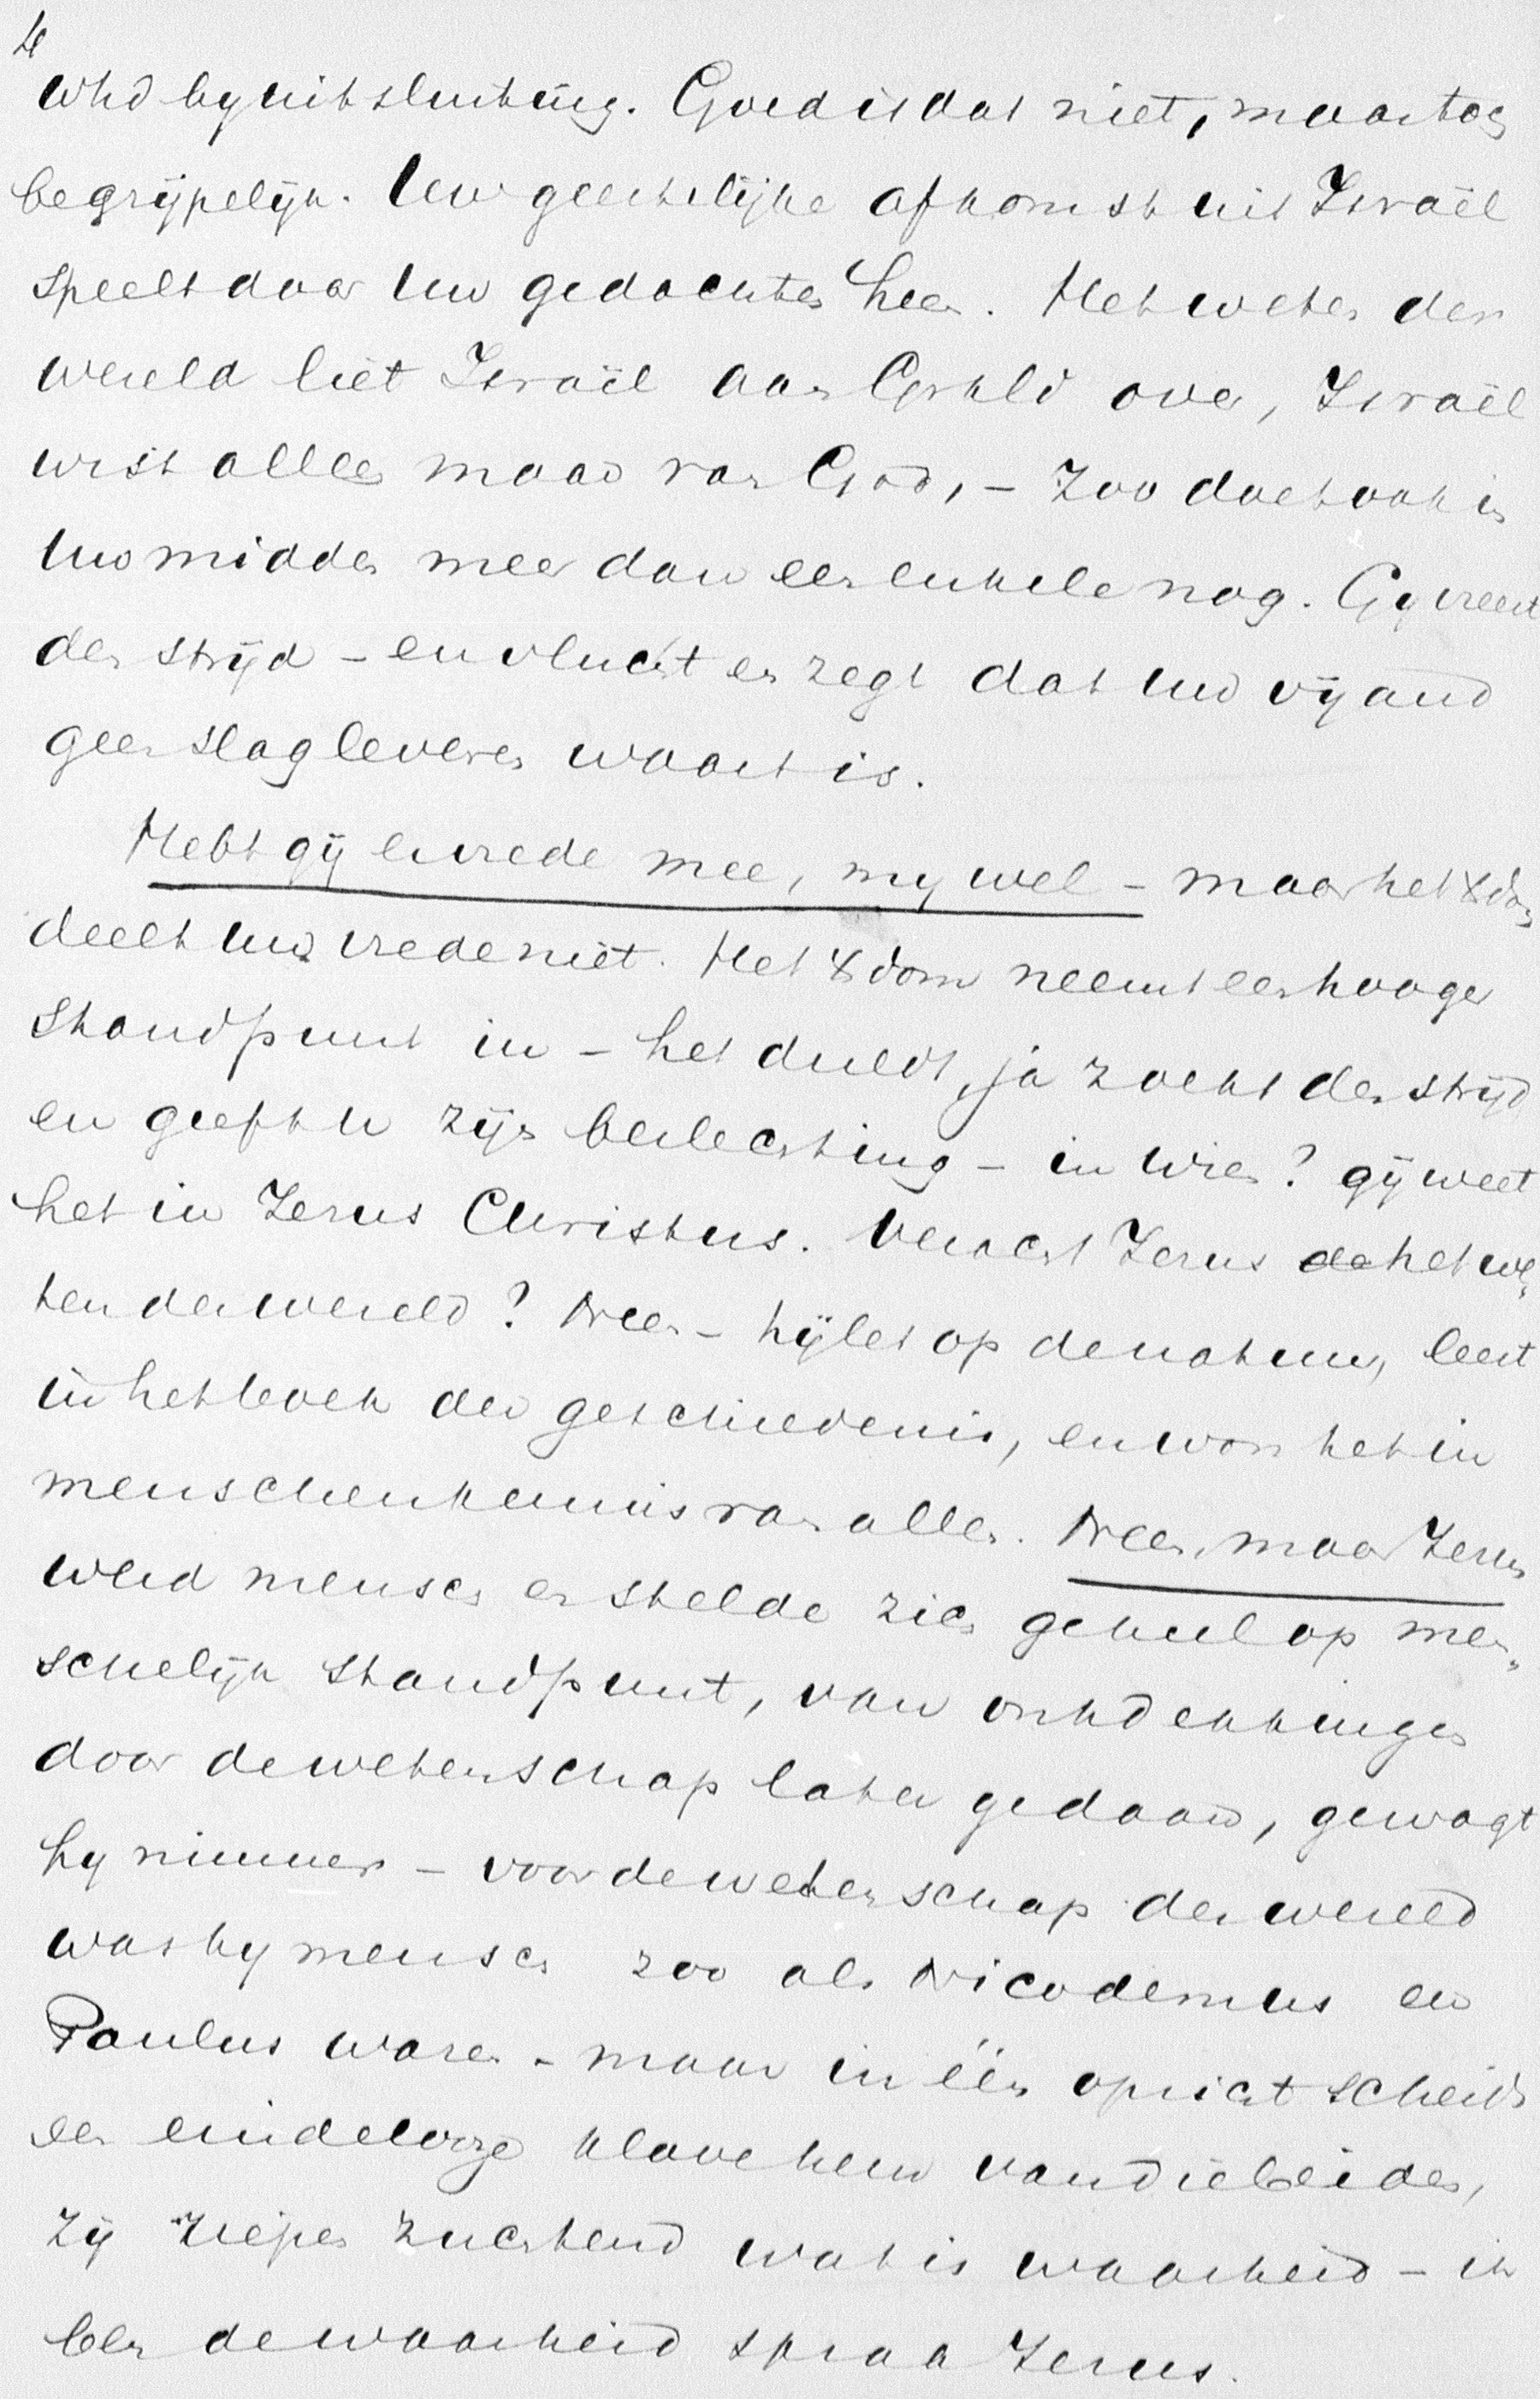 4
whd by uitsluiting. Goed is dat niet, maar tog
begrijpelijk. Uw geestelijke afkomst uit Israël
speelt door Uw gedachten heen. Het weten der
wereld liet Israël aan Grkld over, Israël
wist alles maar van God, - zoo doet ook in
Uw midden meer dan een enkele nog. Gy vreest
den strijd - en vlucht en zegt dat Uw vijand
geen slagleveren waart is.
Hebt gij er vrede mee, my wel - maar het Xdom
deelt Uw vrede niet. Het Xdom neemt een hooger
standpunt in - het duldt, ja zoekt den strijd
en geeft U zijn beslechting - in wien? gij weet
het in Jezus Christus. Veracht Jezus het we„
ten der wereld? Neen - hij let op de natuur, leest
in het boek der geschiedenis, en won het in
menschenkennis van allen. Neen, maar Jezus
werd mensch en stelde zich geheel op men„
schelijk standpunt, van ontdekkingen
door de wetenschap later gedaan, gewagt
hy nimmer - voor de wetenschap der wereld
was hy mensch zoo als Nicodemus en
Paulus waren - maar in één opzicht scheidt
een eindelooze klove hem van die beiden,
zij riepen zuchtend wat is waarheid - ik
ben de waarheid sprak Jezus.